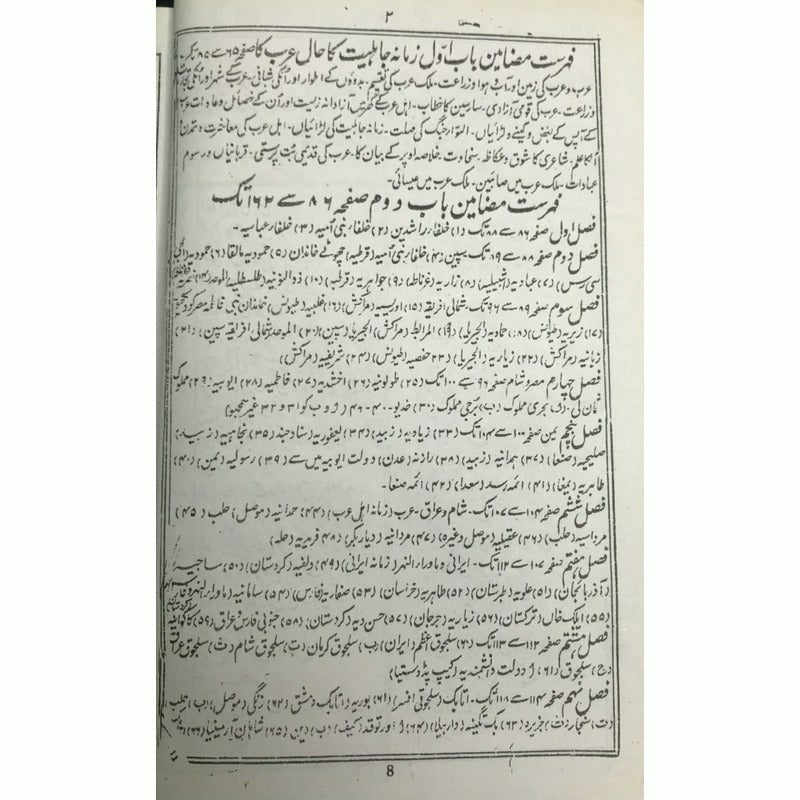 ۲
فہرست مضامین باب اوّل زمانہ جاہلیت کا حال عرب کا صفحہ ۶۵ سے ۸۵ تک
عرب و عرب کی زمین اور آب و ہوا و زراعت۔ ملک عرب کی تقسیم۔ بدوؤں کے اطوار اور انکی شبانی۔ عرب کے شہر اور انکی تجارت
و زراعت۔ عرب کی قومی آزادی۔ سارسین کا خطاب۔ اہل عرب کے گھوڑے آزادانہ زیست اور ان کے خصائل و عادات عرب
کے آپس کے بغض و کینے و لڑائیاں۔ التواء جنگ کی مہلت۔ زمانہ جاہلیت کی لڑائیاں۔ اہل عرب کی معاشرت و تمدن و
انکا علم۔ شاعری کا شوق و عکاظ۔ سخاوت۔ خلاصہ اوپر کے بیان کا۔ عرب کی قدیمی بت پرستی۔ قربانیاں و رسوم
عبادات۔ ملک عرب میں صائبین۔ ملک عرب میں عیسائی۔
فہرست مضامین باب دوم صفحہ ۸۶ سے ۱۶۲ تک
فصل اول صفحہ ۸۶ سے ۸۸ تک (۱) خلفاء راشدین (۲) خلفاء بنی اُمیہ (۳) خلفاء عباسیہ۔
فصل دوم صفحہ ۸۸ سے ۸۹ تک سپین (۴) خلفاء بنی اُمیہ (قرطبہ) چھوٹے خاندان (۵) حمودیہ مالقا (۶) حمودیہ (الجی
سی رس) (۷) عبادیہ (اشبیلیہ) (۸) زاریہ (غرناطہ) (۹) جواہریہ (قرطبہ) (۱۰) ذوالنونیہ (طلیطلہ)
فصل سوم صفحہ ۸۹ سے ۹۶ تک۔ شمالی افریقہ (۱۵) ادریسیہ (مراکش) (۱۶) اغلبیہ (طیونس) خاندان بنی فاطمہ مصر کو دیکھو
(۱۷) زیریہ (طیونس) (۱۸) حمادیہ (الجیریا) (۱۹) المرابط (مراکش۔ الجیریا۔ سپین) (۲۰) الموحد (شمالی افریقہ سپین) (۲۱)
زیانیہ (مراکش) (۲۲) زیاریہ (الجیریا) (۲۳) حفصیہ (طیونس) (۲۴) شریفیہ (مراکش)
فصل چہارم مصر و شام صفحہ ۹۶ سے ۱۰۰ تک (۲۵) طولونیہ (۲۶) اخشدیہ (۲۷) فاطمیہ (۲۸) ایوبیہ (۲۹) مملوک
بحری مملوک (ب) برجی مملوک (۳۰) خدیو۔
فصل پنجم یمن صفحہ ۱۰۰ سے ۱۰۴ تک (۳۳) زیادیہ (زبید) (۳۴) یعفوریہ (صنعا و جند) (۳۵) نجاحیہ (زبید)
صلیحیہ (صنعا) (۳۷) ہمدانیہ (زبید) (۳۸) رازنہ (عدن) دولت ایوبیہ میں سے (۳۹) رسولیہ (یمن) (۴۰)
طاہریہ (یمن) (۴۱) ائمہ رسد (سعدا) (۴۲) ائمہ صنعا۔
فصل ششم صفحہ ۱۰۴ سے ۱۰۷ تک۔ شام و عراق۔ عرب (زمانہ اہل عرب) (۴۴) حمدانیہ (موصل) حلب (۴۵)
مرداسیہ (حلب) (۴۶) عقیلیہ (موصل وغیرہ) (۴۷) مردانیہ (دیار بکر) (۴۸) مزیدیہ (حلہ)
فصل ہفتم صفحہ ۱۰۷ سے ۱۱۲ تک۔ ایرانی و ماوراء النہر (زمانہ ایرانی) (۴۹) دلفیہ (کردستان) (۵۰) ساجیہ
(آذربائجان) (۵۱) علویہ (طبرستان) (۵۲) طاہریہ (خراسان) (۵۳) صفاریہ (فارس) (۵۴) سامانیہ (ماوراء النہر و فارس)
(۵۵) ایلک خاں (ترکستان) (۵۶) زیاریہ (جرجان) (۵۷) حسن دیہ (کردستان) (۵۸) جنوبی فارس و عراق) (۵۹) کاکوئیہ
فصل ہشتم صفحہ ۱۱۲ سے ۱۱۳ تک (۶۰) سلجوق اعظم (ایران) (ب) سلجوق کرمان (ت) سلجوق شام (ث) سلجوق عراق
(ج) سلجوق (۶۱) دولت دانشمندیہ (کیپ پڈوسیا)
فصل نہم صفحہ ۱۱۴ سے ۱۱۸ تک۔ اتابک (سلجوقی افسر) (۶۱) بوریہ (اتابک دمشق) (۶۲) زنگی (موصل) (ب) حلب
(ت) سنجار (ث) جزیرہ (۶۳) بک تگینیہ (اربیلا) (۶۴) اورتوقد (کیفا) (۶۵) شاہان آرمینیا (۶۶)
8